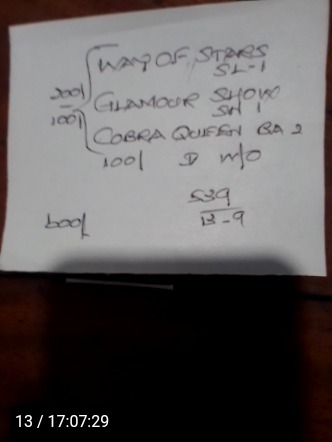 WAY OF STARS
SL-1
200/
100/
GLAMOUR SHOW
SH 1
COBRA QUEEN BA 2
100/ D W/O
539
13-9
600/
13 / 17:07:29